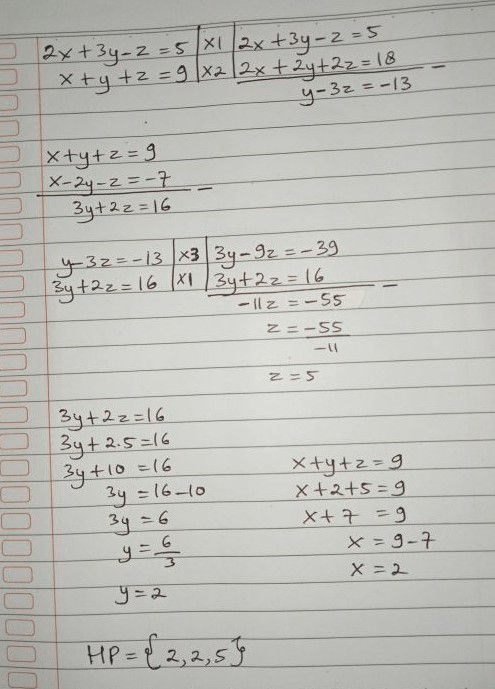 2x+3y-z=5 | x1 | 2x+3y-z=5
x+y+z=9 | x2 | 2x+2y+2z=18 -
y-3z=-13
x+y+z=9
x-2y-z=-7 -
3y+2z=16
y-3z=-13 | x3 | 3y-9z=-39
3y+2z=16 | x1 | 3y+2z=16 -
-11z=-55
z=-55/-11
z=5
3y+2z=16
3y+2.5=16
3y+10=16
3y=16-10
3y=6
y=6/3
y=2
x+y+z=9
x+2+5=9
x+7=9
x=9-7
x=2
HP={2,2,5}